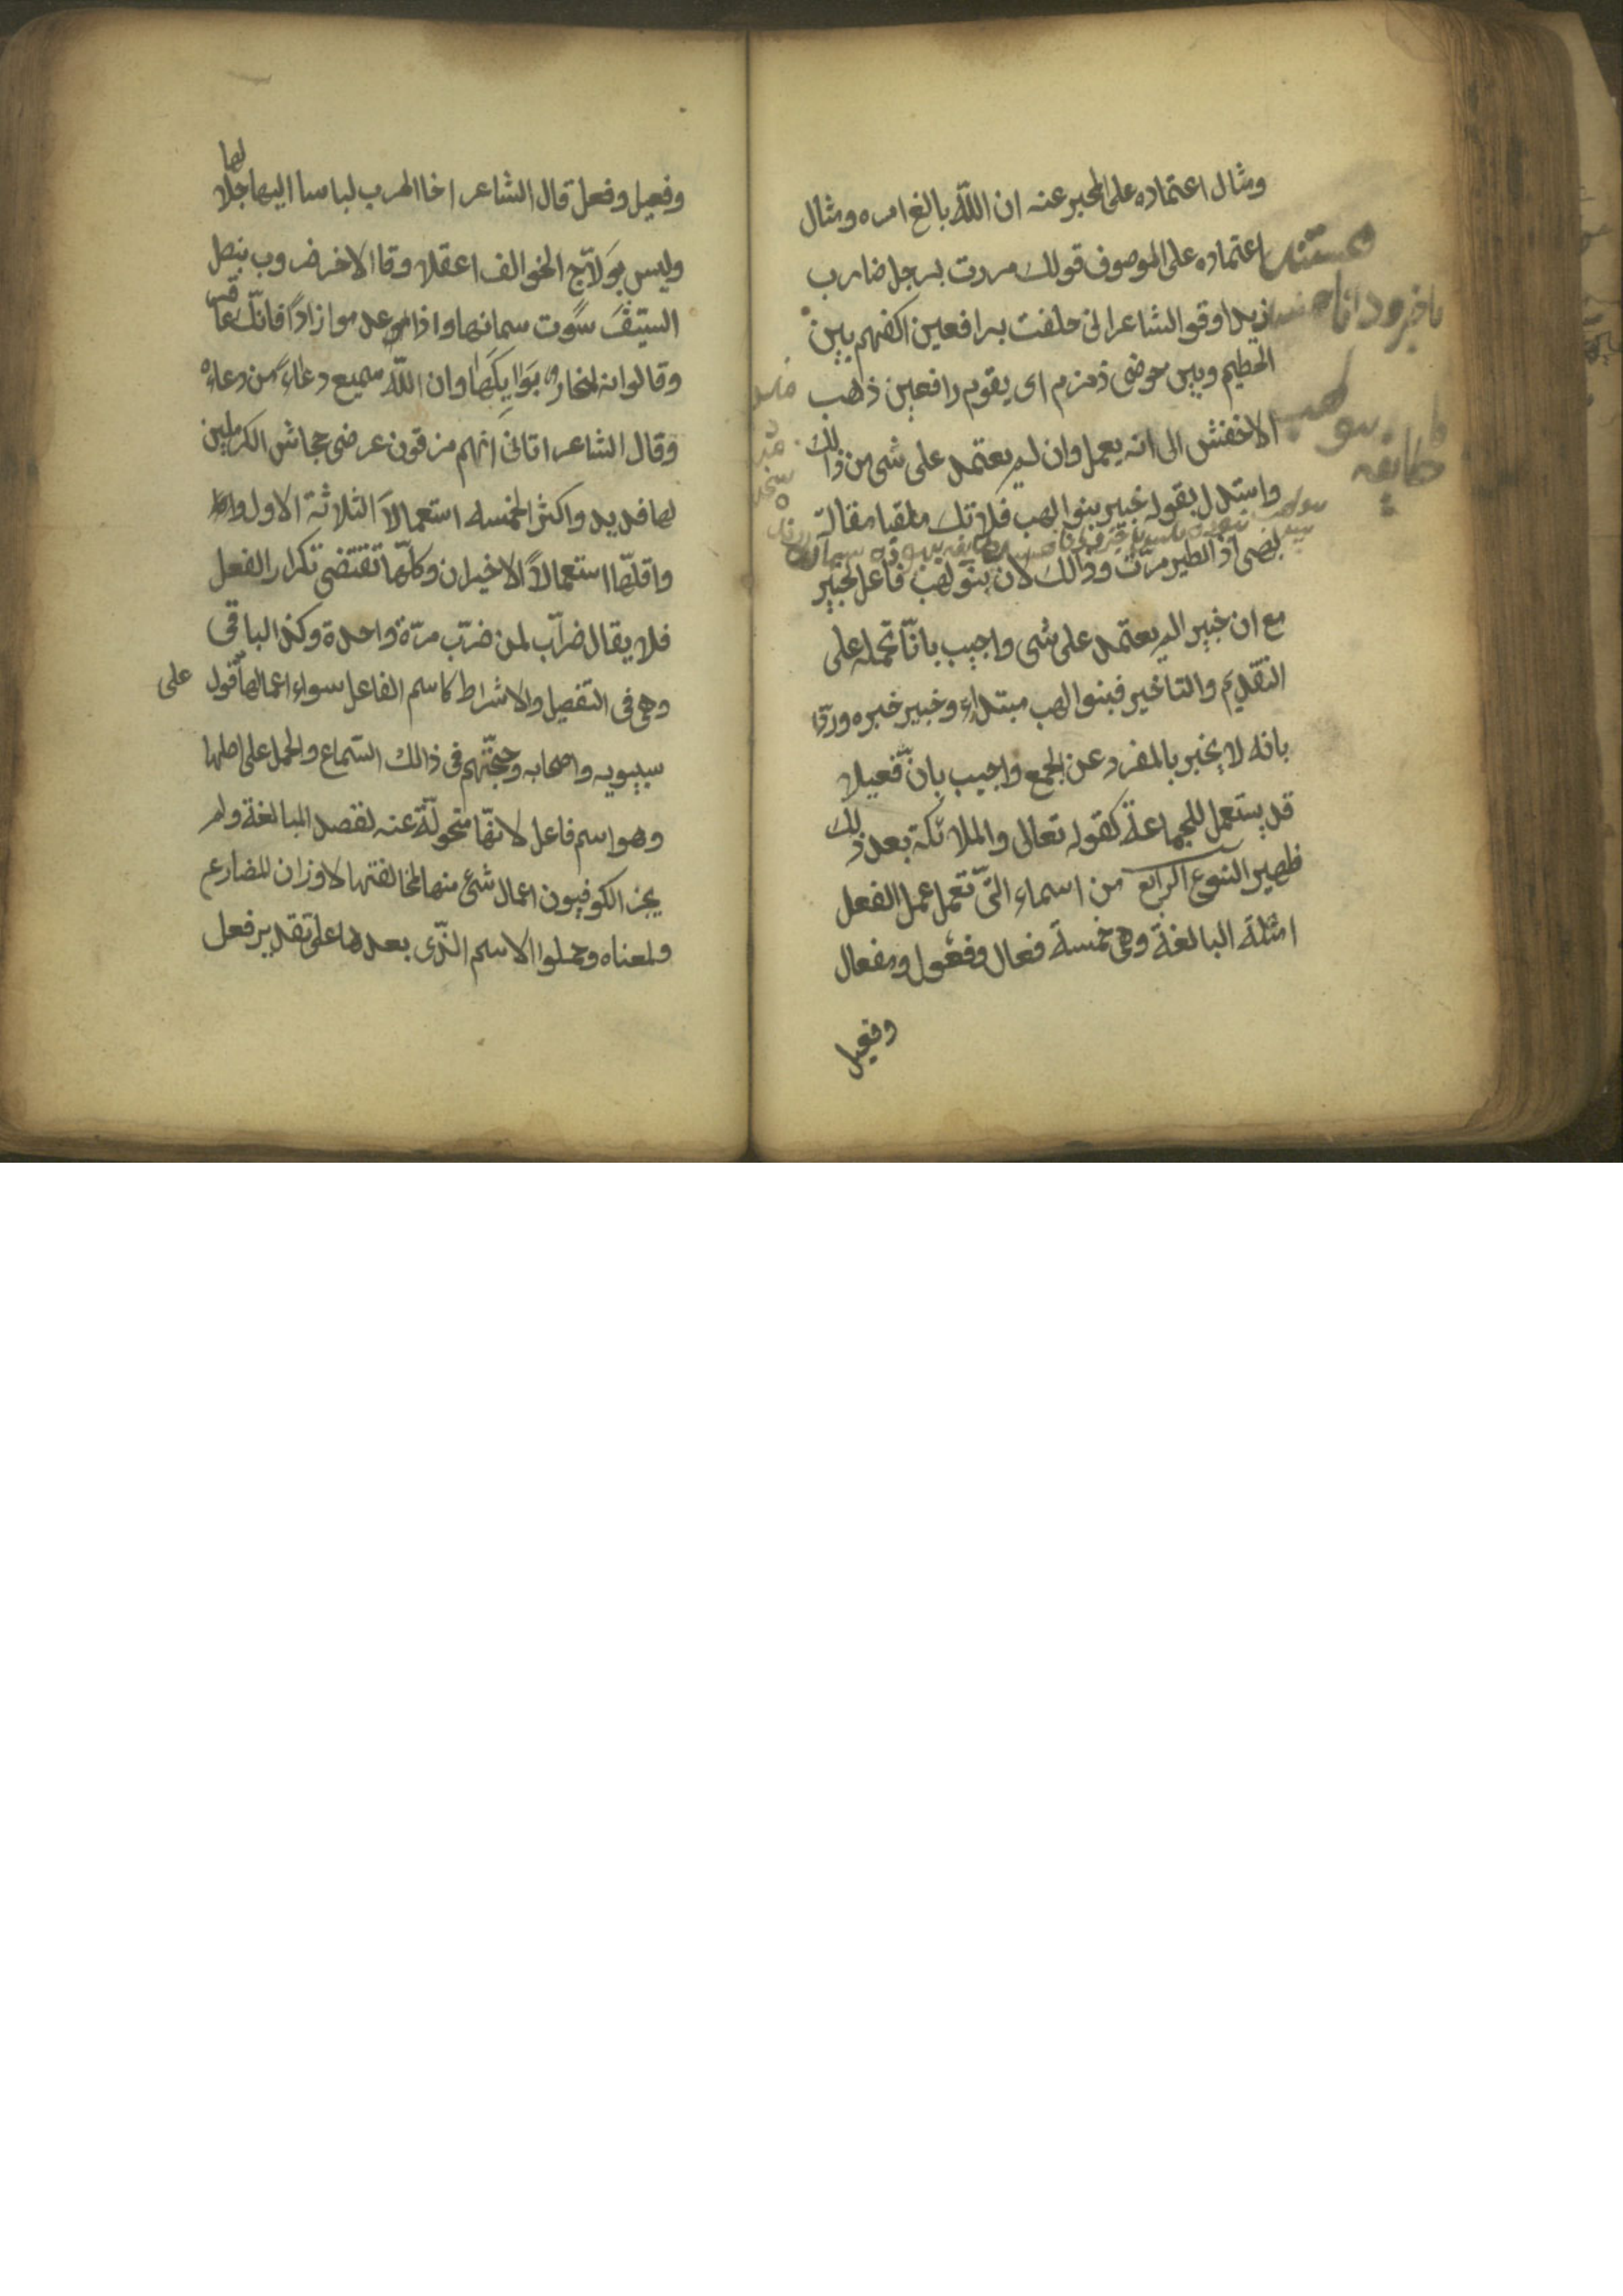 ومثال اعتماده على المخبر عنه ان اللّه بالغ امره ومثال
اعتماده على الموصوف قولك مررت برجل ضارب
زيدا وقو الشاعر انى حلفت برافعين اكفهم بين
الحطيم وبين حوضى زمزم اى يقوم رافعين ذهب
الاخفش الى انه يعمل وان لم يعتمد على شى من ذالك
واستدل بقوله خبير بنوا لهب فلا تك ملقيا مقالة
لهبى اذ الطير مرّت وذالك لان بنو لهب فاعل لخبير
مع ان خبير الم يعتمد على شى واجيب بانّا نحمله على
التقديم والتاخير فبنوا لهب مبتداء وخبير خبره وردّ
بانه لا يخبر بالمفرد عن الجمع واجيب بانّ فعيلا
قد يستعمل للجماعة كقوله تعالى والملائكة بعد ذلك
ظهير النوع الرابع من اسماء التّى تعمل عمل الفعل
امثلة البالغة وهى خمسة فعال وفعول ومفعال
وفعيل
وفعيل وفعل قال الشاعر اخا الحرب لباسا اليها جلالها
وليس بولاّج الخوالف اعقلا وقا الاخر ضروب بنصل
السّيف سوت سمانها واذا عدموا زاداً فانّك عاقر
وقالوا انه لمنحار بوايكها وان اللّه سميع دعاء من دعاه
وقال الشاعر اتانى انهم مزقون عرضى جحاش الكرملين
لها فديد واكثر الخمسه استعمالاً الثلاثة الاول
واقلّها استعمالاً الاخيران وكلّها تقتضى تكرار الفعل
فلا يقال ضرّاب لمن ضرب مرّة واحدة وكذ الباقى
وهى فى التفصيل والاشراط كاسم الفاعل سواء اعمالها قول
على
سيبويه واصحابه وحجّتهم فى ذالك السّماع والحمل على اصلها
وهو اسم فاعل لانّها متحولّة عنه لقصد المبالغة ولم
يجز الكوفيون اعمال شئ منها لمخالفتها لاوزان للمضارع
ولمعناه وحملوا الاسم الذّى بعدها على تقدير فعل